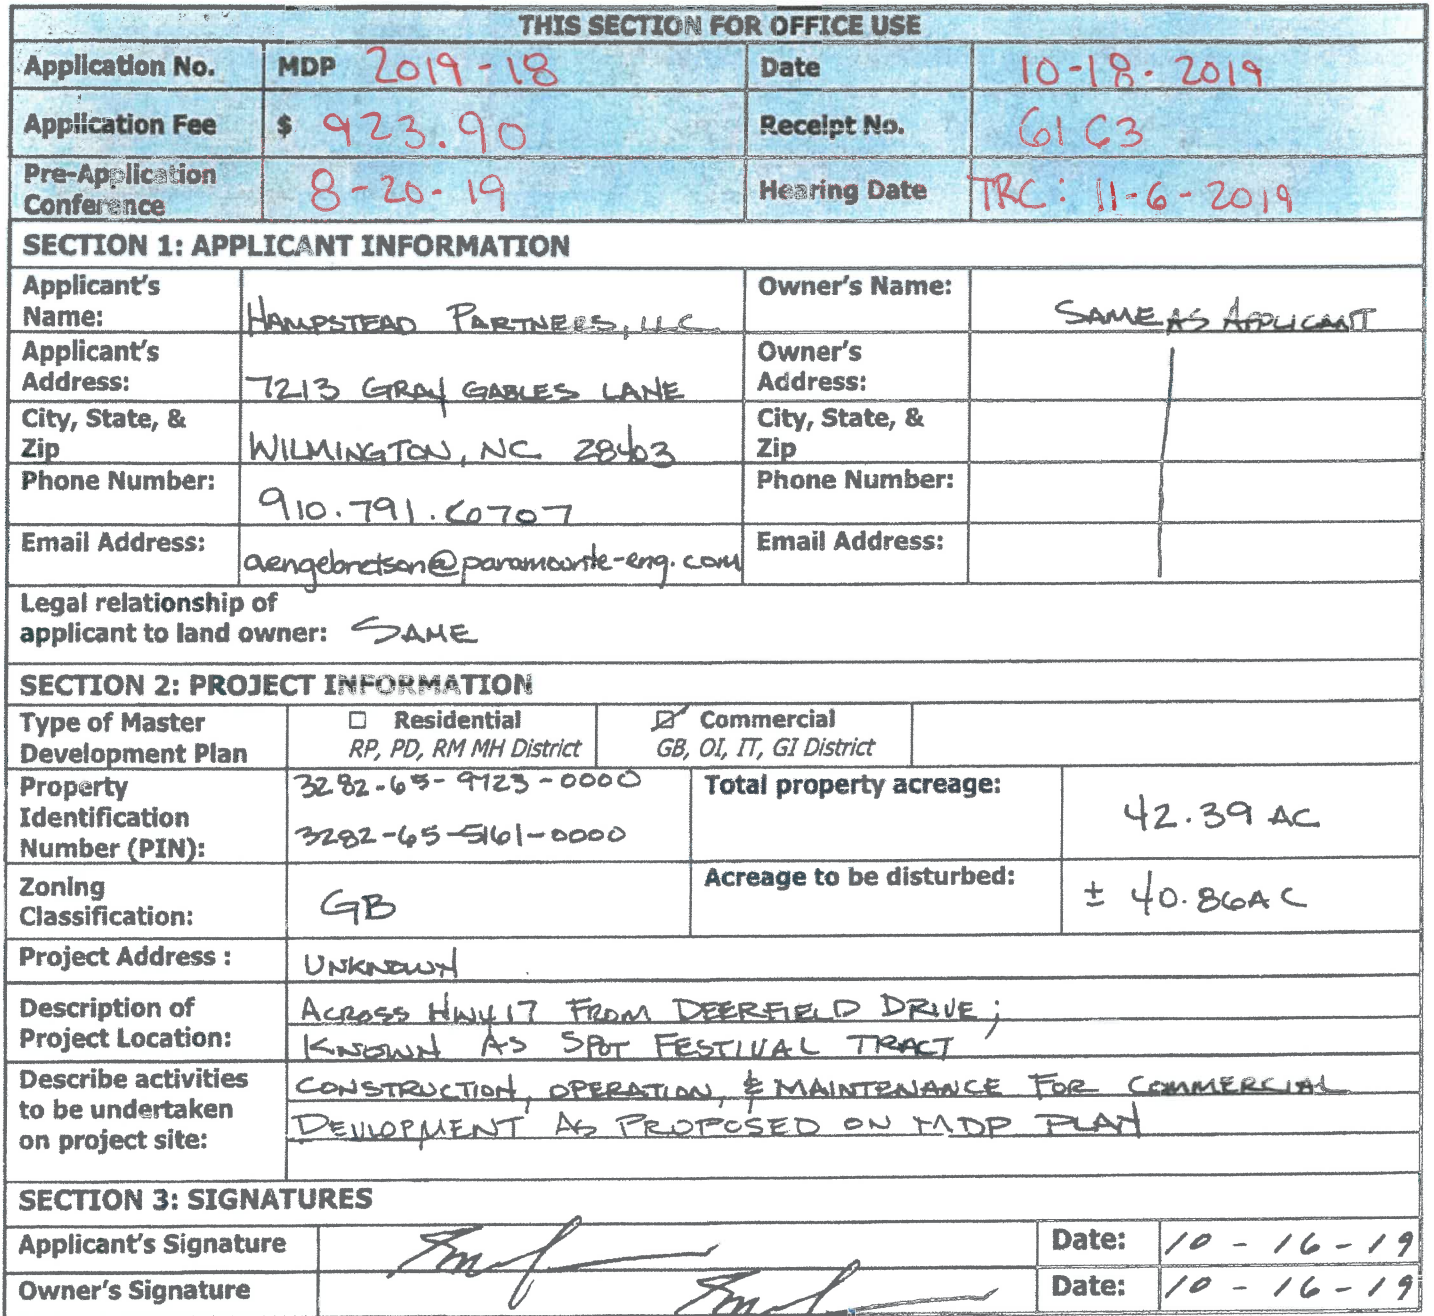 THIS SECTION FOR OFFICE USE
Application No. MDP 2019-18 Date 10-18-2019
Application Fee $ 923.90 Receipt No. 6163
Pre-Application
Conference 8-20-19 Hearing Date TRC: 11-6-2019
SECTION 1: APPLICANT INFORMATION
Applicant's
Name: HAMPSTEAD PARTNERS, LLC Owner's Name: SAME AS APPLICANT
Applicant's
Address: 7213 GRAY GABLES LANE Owner's
Address:
City, State, &
Zip WILMINGTON, NC 28403 City, State, &
Zip
Phone Number: 910.791.6707 Phone Number:
Email Address: aengebretson@paramounte-eng.com Email Address:
Legal relationship of
applicant to land owner: SAME
SECTION 2: PROJECT INFORMATION
Type of Master
Development Plan
☐ Residential
RP, PD, RM MH District
☑ Commercial
GB, OI, IT, GI District
Property
Identification
Number (PIN):
3282-65-9723-0000
3282-65-5161-0000
Total property acreage: 42.39 AC
Zoning
Classification: GB
Acreage to be disturbed: ± 40.86 AC
Project Address : UNKNOWN
Description of
Project Location:
ACROSS HWY 17 FROM DEERFIELD DRIVE;
KNOWN AS SPOT FESTIVAL TRACT
Describe activities
to be undertaken
on project site:
CONSTRUCTION, OPERATION, & MAINTENANCE FOR COMMERCIAL
DEVLOPMENT AS PROPOSED ON MDP PLAN
SECTION 3: SIGNATURES
Applicant's Signature Date: 10-16-19
Owner's Signature Date: 10-16-19